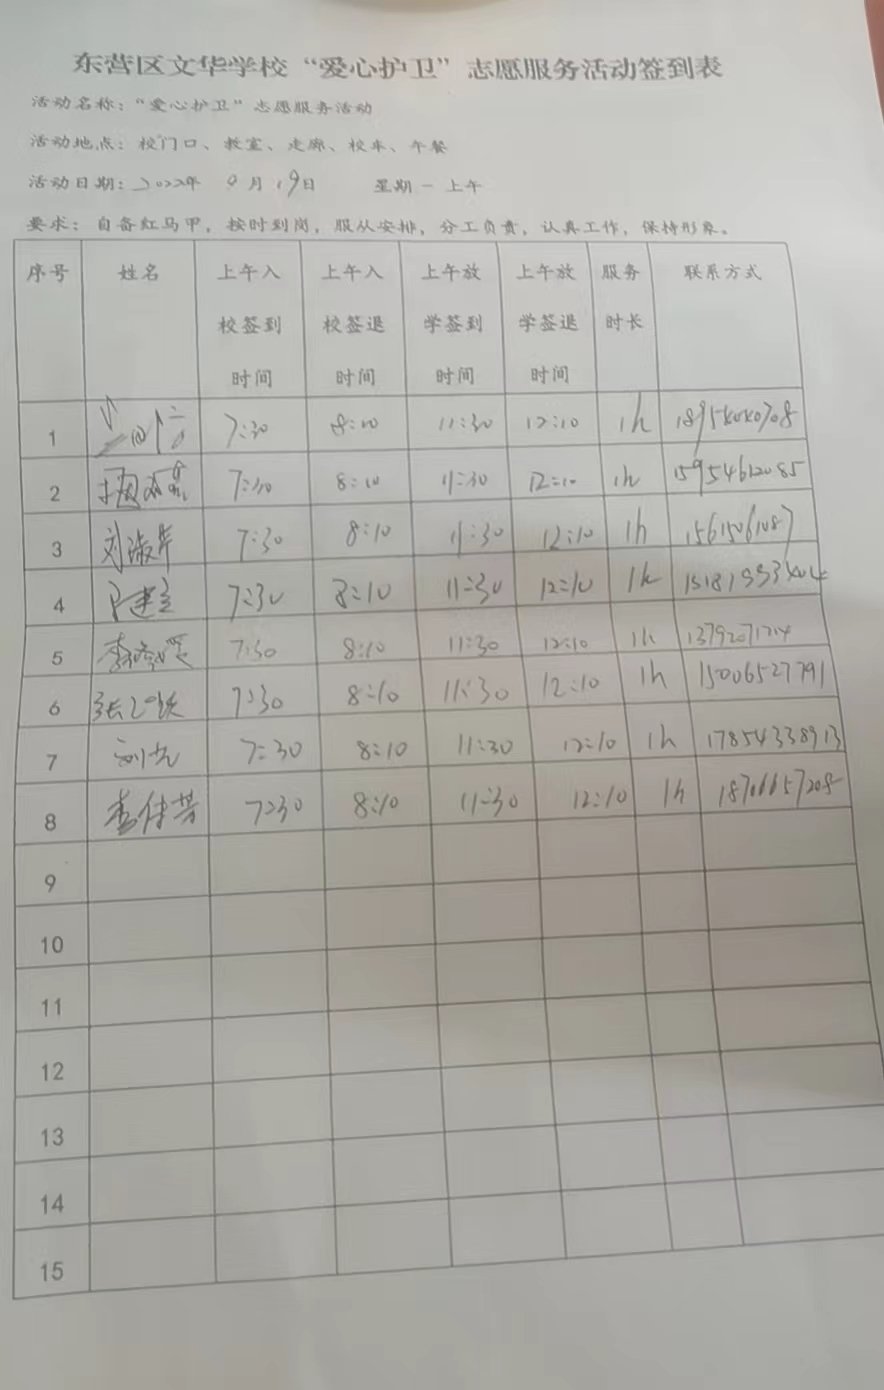 东营区文华学校“爱心护卫”志愿服务活动签到表
活动名称：“爱心护卫”志愿服务活动
活动地点：校门口、教室、走廊、校车、午餐
活动日期：2022年 9月19日 星期一 上午
要求：自备红马甲，按时到岗，服从安排，分工负责，认真工作，保持形象。
序号 姓名 上午入校签到时间 上午入校签退时间 上午放学签到时间 上午放学签退时间 服务时长 联系方式
1 7:30 8:10 11:30 12:10 1h
2 7:30 8:10 11:30 12:10 1h 15954612085
3 刘淑芹 7:30 8:10 11:30 12:10 1h 15615061087
4 7:30 8:10 11:30 12:10 1h
5 7:30 8:10 11:30 12:10 1h
6 7:30 8:10 11:30 12:10 1h 15006527791
7 7:30 8:10 11:30 12:10 1h 17854338913
8 7:30 8:10 11:30 12:10 1h 18706657208
9
10
11
12
13
14
15